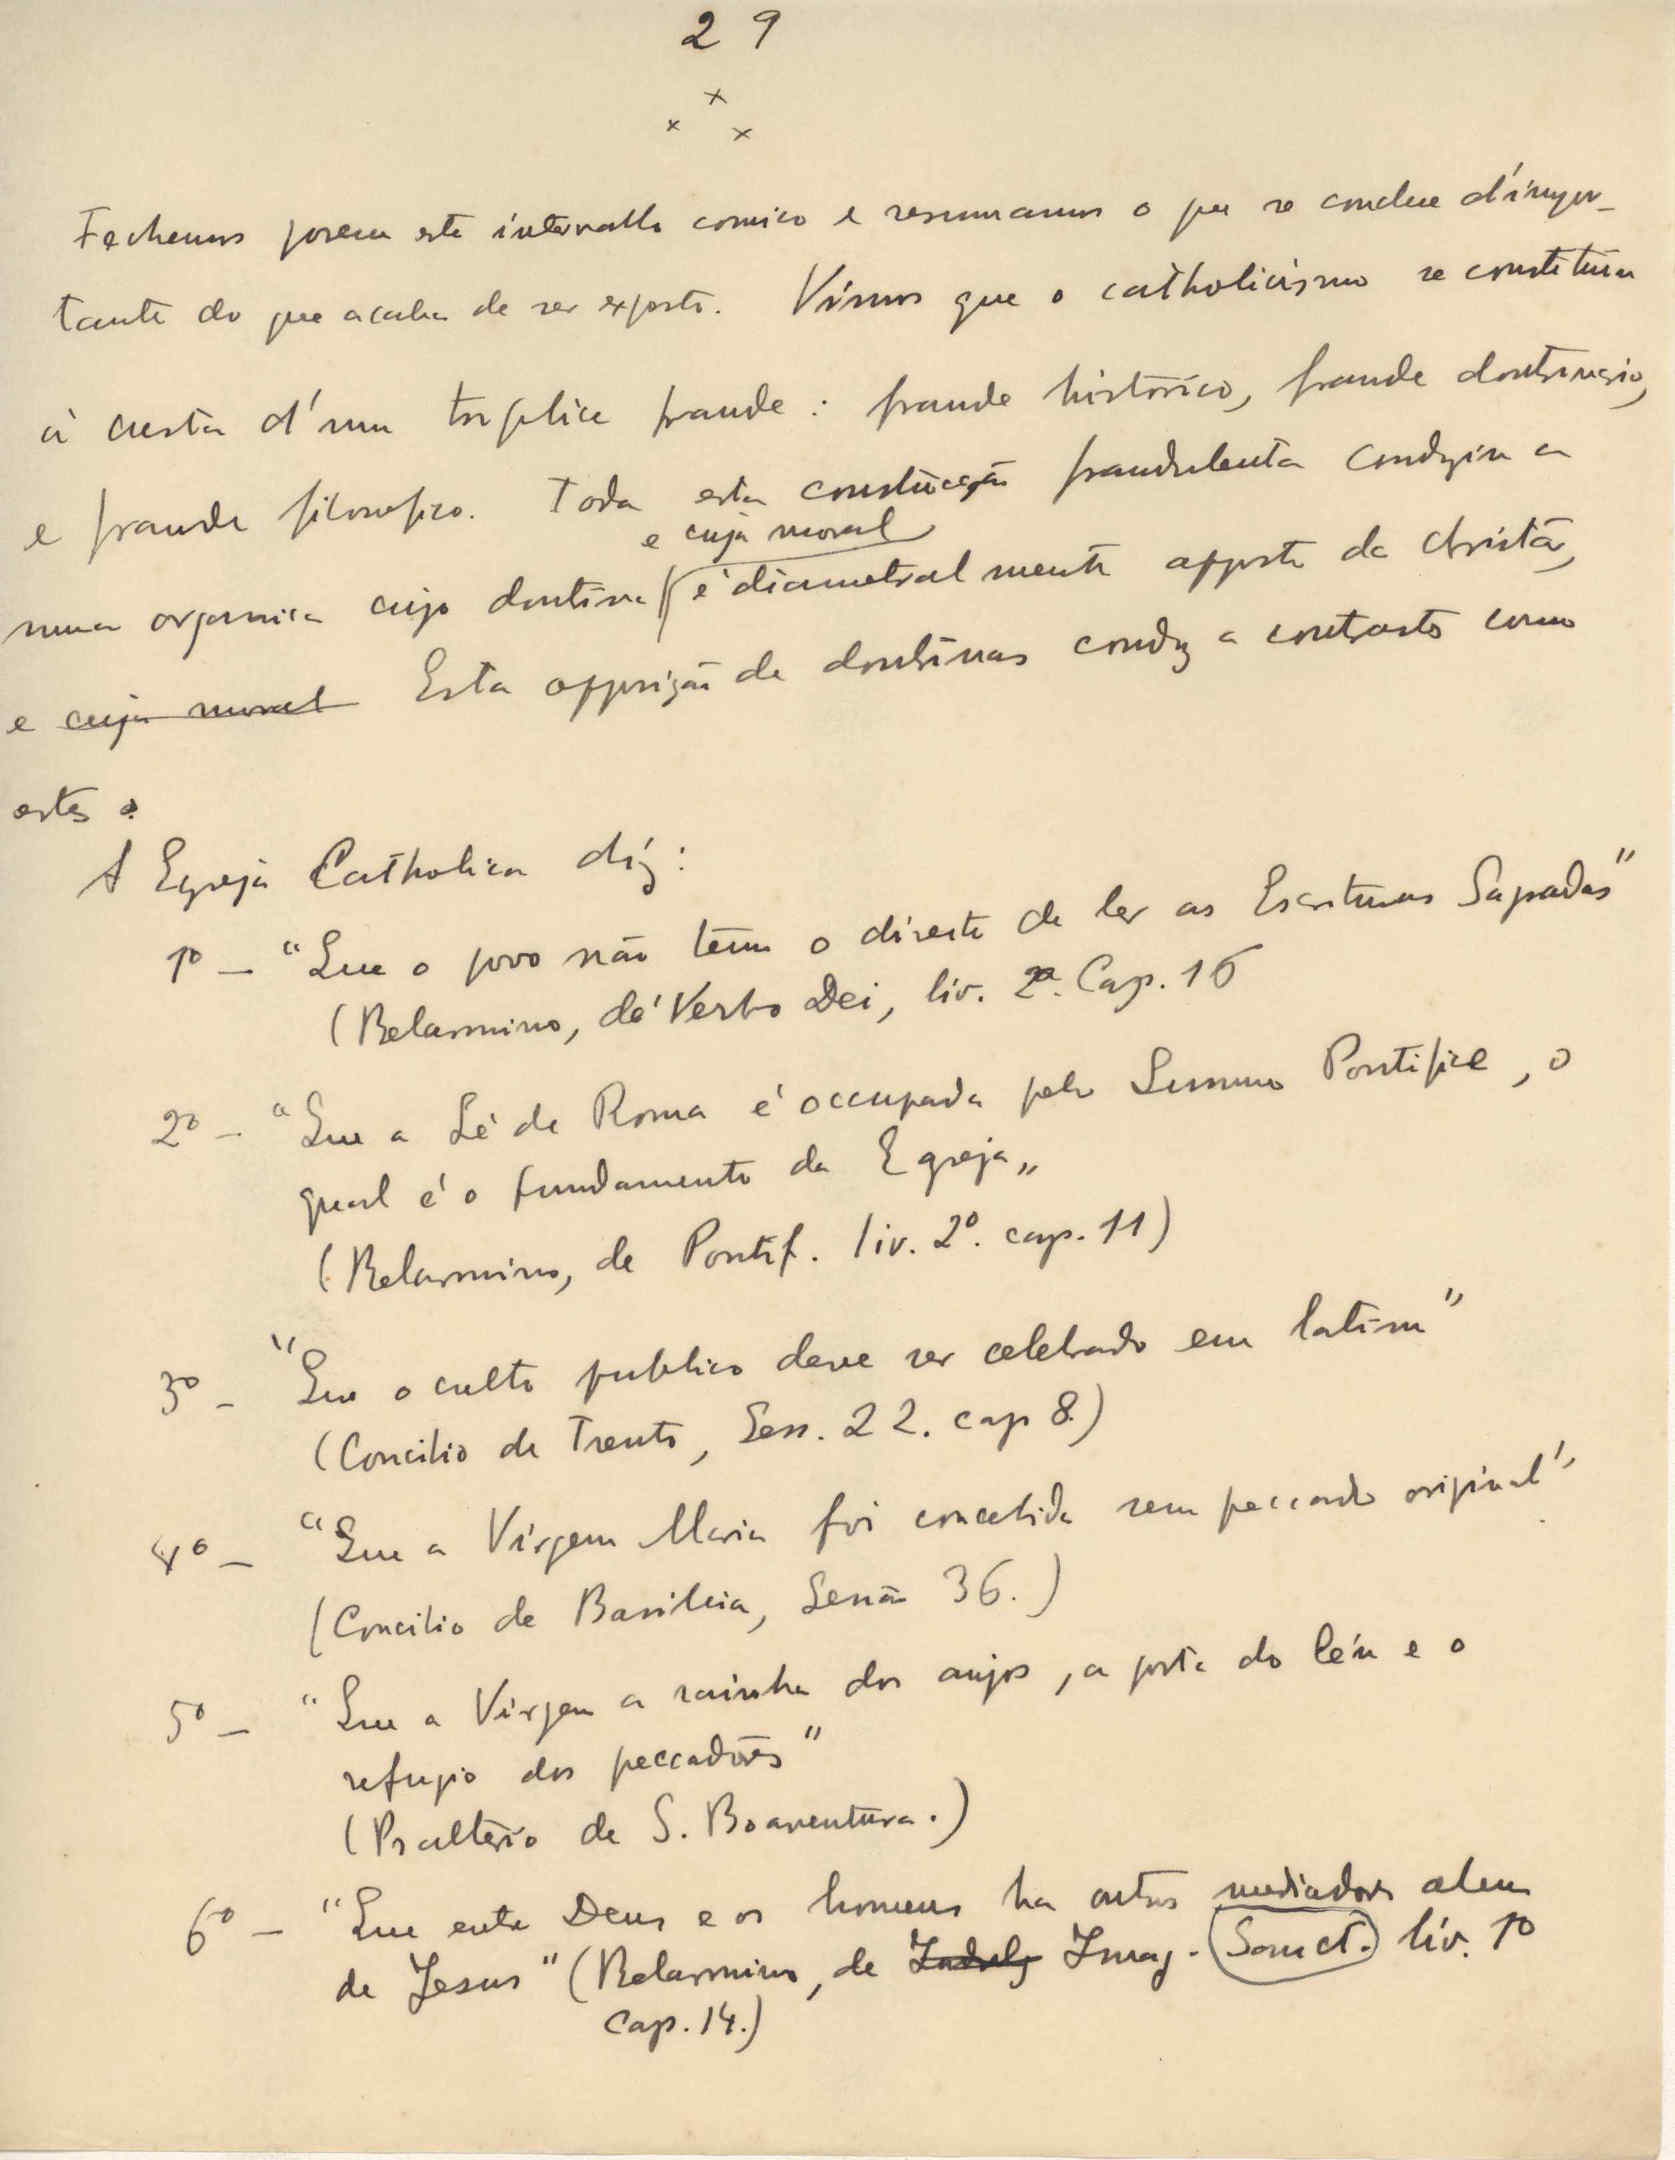 29
× × ×
Fechemos porem este intervallo comico e resumamos o que se conclue d'impor-
tante do que acaba de ser exposto. Vimos que o catholicismo se constituiu
à custa d'uma triplice fraude: fraude historica, fraude doutrinaria,
e fraude filosofica. Toda esta construcção fraudulenta conduziu a
e cuja moral
uma organica cuja doutrina é diametralmente opposta da christã,
e cuja moral Esta opposição de doutrinas conduz a contrastes como
estes:
A Egreja Catholica diz:
1º — "Que o povo não tem o direito de ler as Escrituras Sagradas"
(Belarmino, de Verbo Dei, liv. 2º. Cap. 16
2º — "Que a Sé de Roma é occupada pelo Summo Pontifice, o
qual é o fundamento da Egreja"
(Belarmino, de Pontif. liv. 2º. cap. 11)
3º — "Que o culto publico deve ser celebrado em latim"
(Concilio de Trento, Sess. 22. cap 8.)
4º — "Que a Virgem Maria foi concebida sem peccado original"
(Concilio de Basileia, Sessão 36.)
5º — "Que a Virgem a rainha dos anjos, a porta do Céu e o
refugio dos peccadores"
(Psalterio de S. Boaventura.)
6º — "Que entre Deus e os homens ha outros mediadores alem
de Jesus" (Belarmino, de Imag. Sanct. liv. 1º
Cap. 14.)